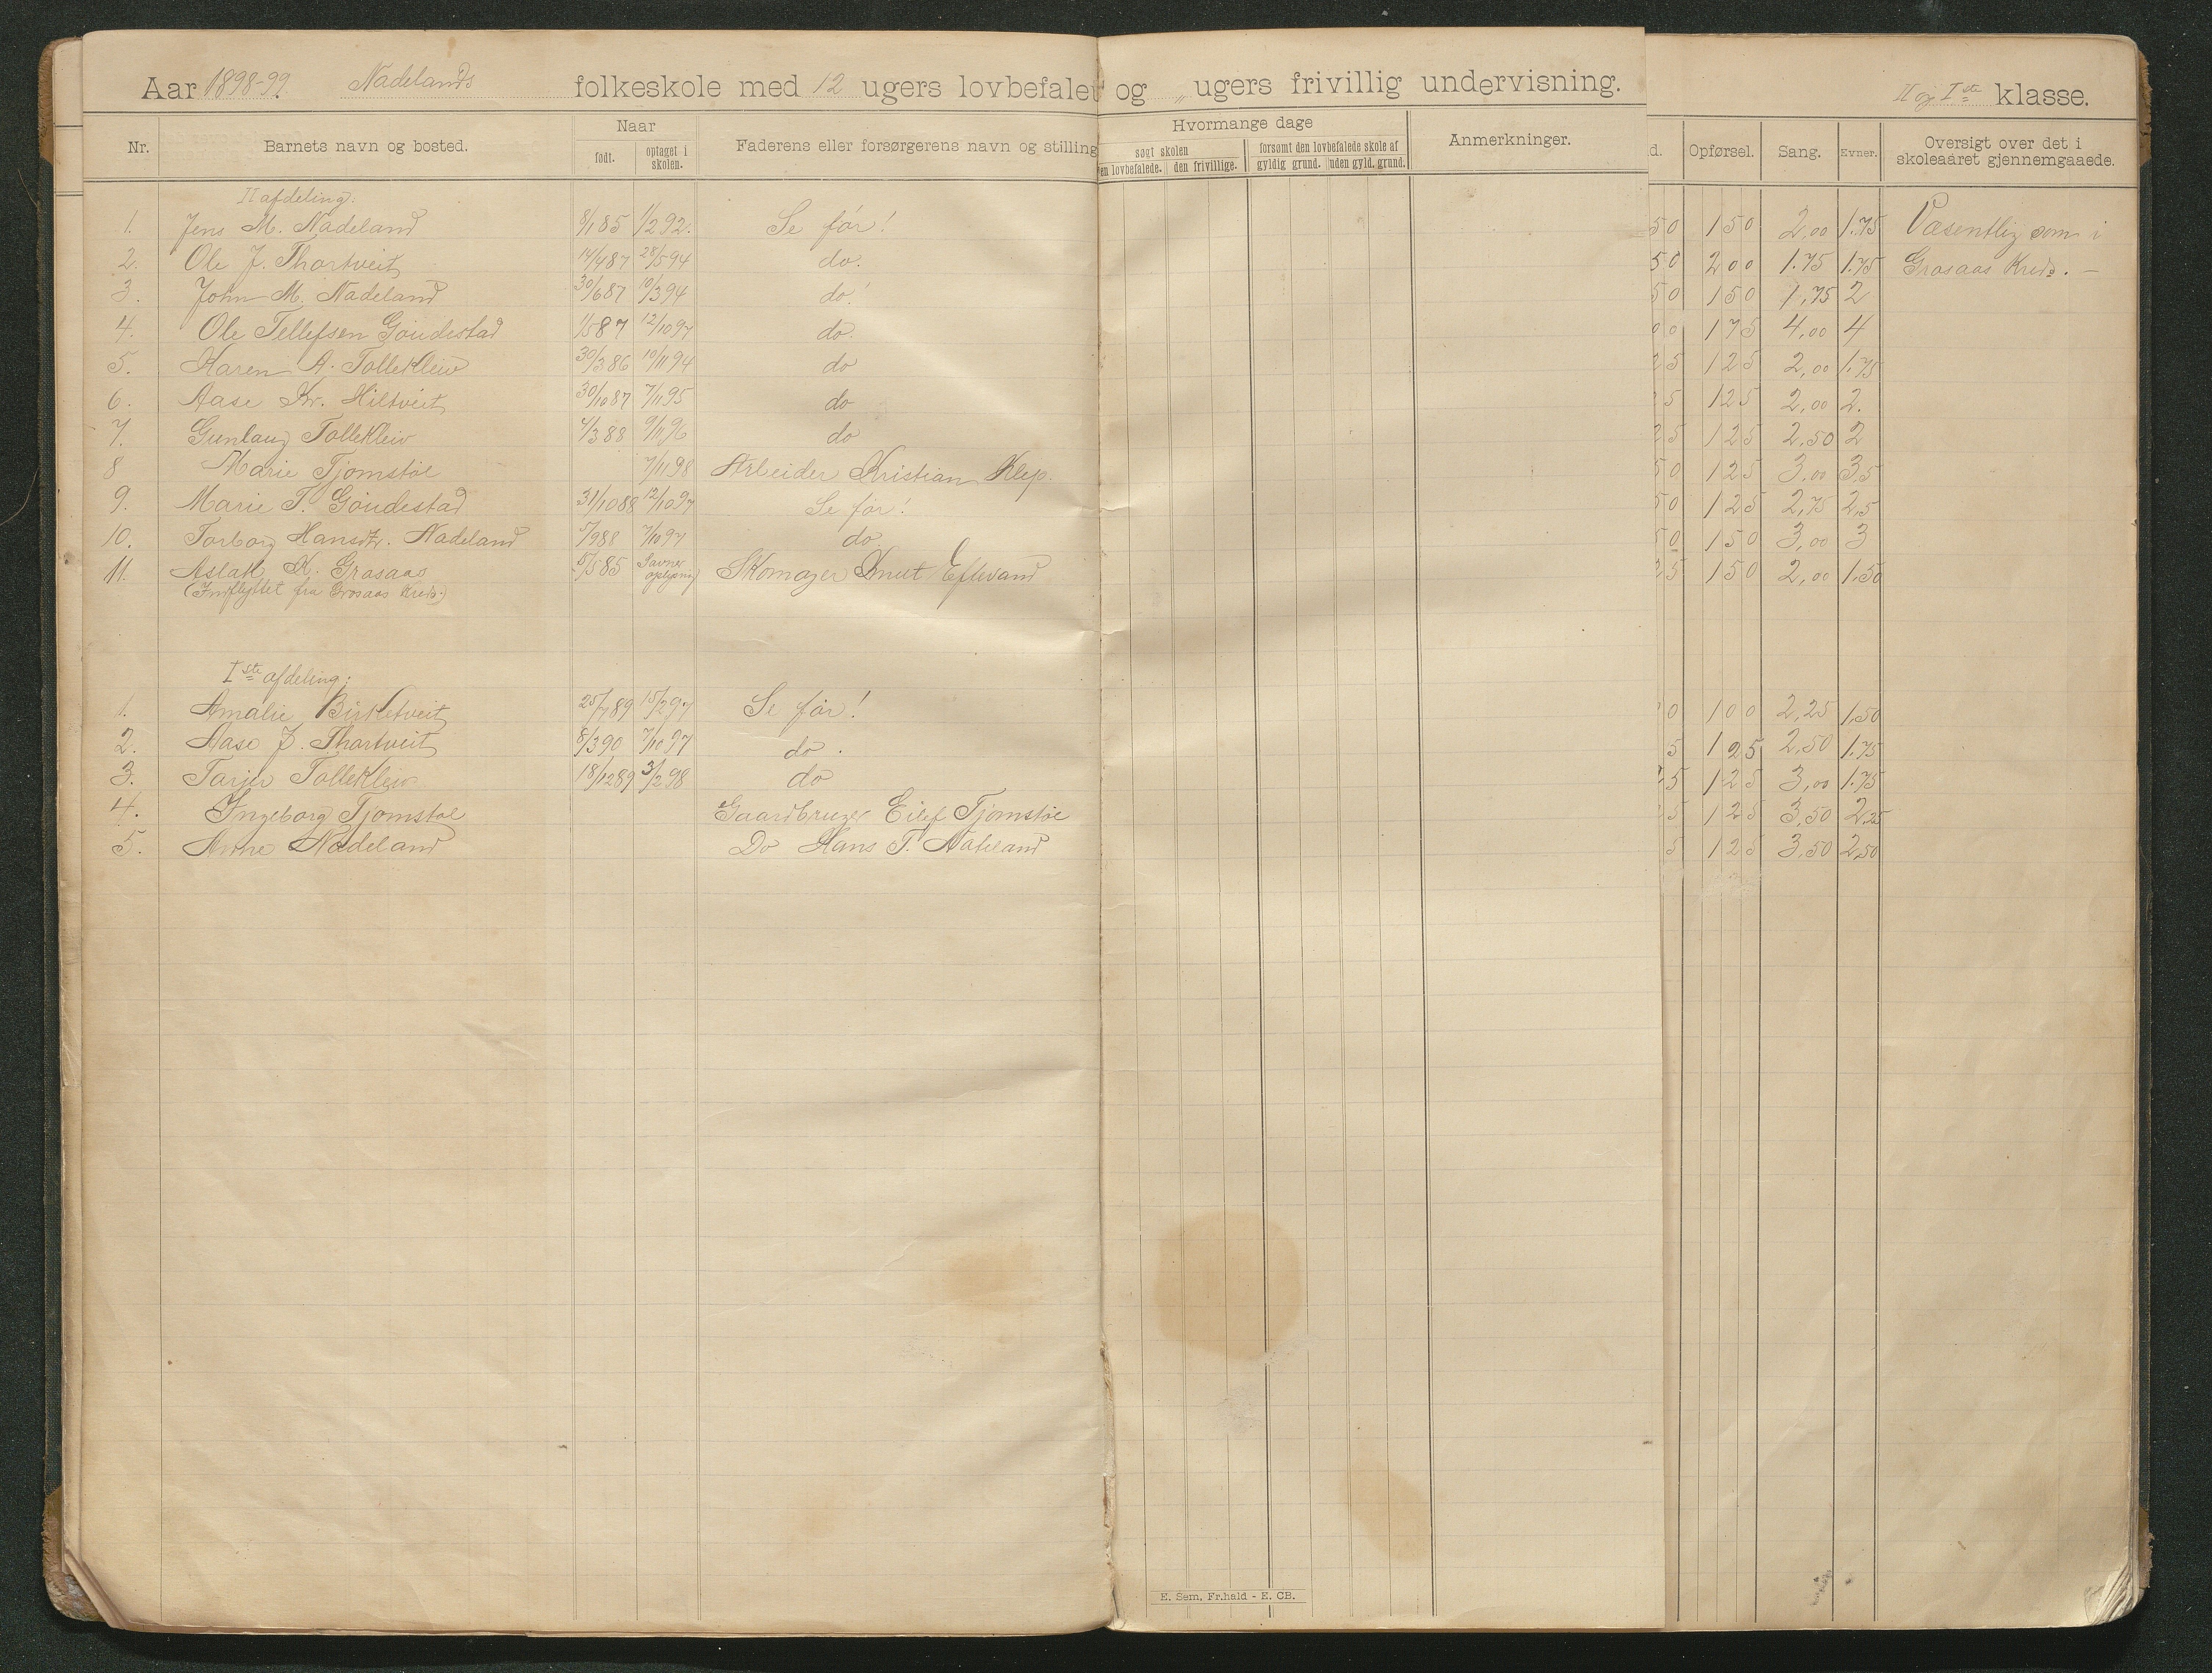 Aar 1898-99. Nadelands folkeskole med 12 ugers lovbefalet og „ ugers frivillig undervisning. II og Iste klasse.
Nr. Barnets navn og bosted. Naar født. optaget i skolen. Faderens eller forsørgerens navn og stilling Hvormange dage søgt skolen den lovbefalede. den frivillige. forsømt den lovbefalede skole af gyldig grund. uden gyld. grund. Anmerkninger. d. Opførsel. Sang. Evner. Oversigt over det i skoleaaret gjennemgaaede.
II afdeling.
1. Jens M. Nadeland 8/1 85 1/2 92. Se før! 50 150 2,00 1.75 Væsentlig som i
2. Ole J. Thortveit 14/4 87 28/5 94 do. 50 200 1.75 1.75 Grosaas Kreds. —
3. John M. Nadeland 30/6 87 10/3 94 do! 50 150 1,75 2
4. Ole Tellefsen Goudestad 1/5 87 12/10 97 do. 00 175 4,00 4
5. Karen A. Tollekleiv 30/3 86 10/11 94 do 25 125 2,00 1.75
6. Aase Kr. Hiltveit 30/10 87 7/11 95 do 5 125 2,00 2.
7. Gunlaug Tollekleiv 4/3 88 9/11 96 do 25 125 2.50 2
8 Marie Tjomstøl 7/11 98 Arbeider Kristian Klep. 50 125 3,00 3,5
9. Marie T. Goudestad 31/10 88 12/10 97 Se før! 50 125 2,75 2,5
10. Torborg Hansdtr. Nadeland 5/9 88 7/10 97 do. 50 150 3,00 3
11. Aslak K. Grosaas 5/5 85 Savner oplysning Skomager Knut Eftevand 25 150 2,00 1.50
(Indflyttet fra Grosaas Kreds.)
Iste afdeling:
1. Amalie Birketveit 25/7 89 15/2 97 Se før! 0 100 2,25 1,50
2. Aase J. Thortveit 8/3 90 7/10 97 do. 5 125 2,50 1.75
3. Tarjer Tollekleiv 18/12 89 3/2 98 do 25 125 3,00 1.75
4. Ingeborg Tjomstøl Gaardbruger Eilef Tjomstøl 5 125 3,50 2,25
5. Anne Nadeland Do Hans T. Nadeland 5 125 3,50 2,50
E. Sem, Fr.hald - E. CB.